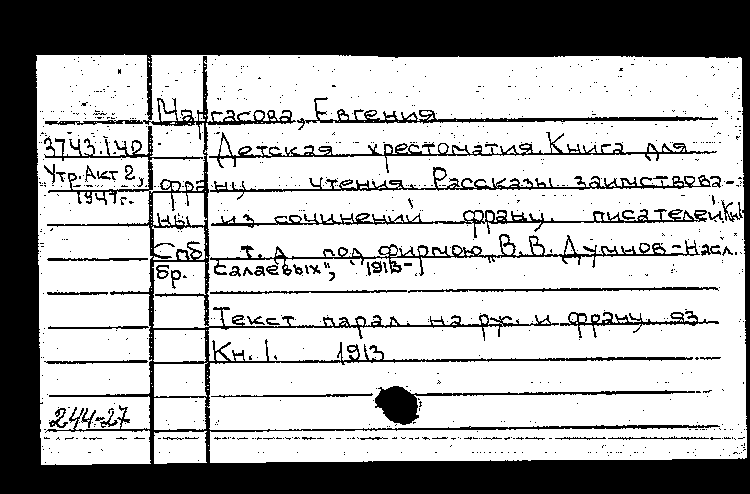 Маргасова, Евгения
3743.1.40 Детская хрестоматия. Книга для
Утр. Акт 2, франц. чтения. Рассказы заимствова-
1947г.
ны из сочинений франц. писателей. Кн.
Спб т. д. под фирмою „В. В. Думнов - Насл.
бр. Салаевых", 1913-
Текст парал. на рус. и франц. яз.
Кн. 1. 1913
244-27